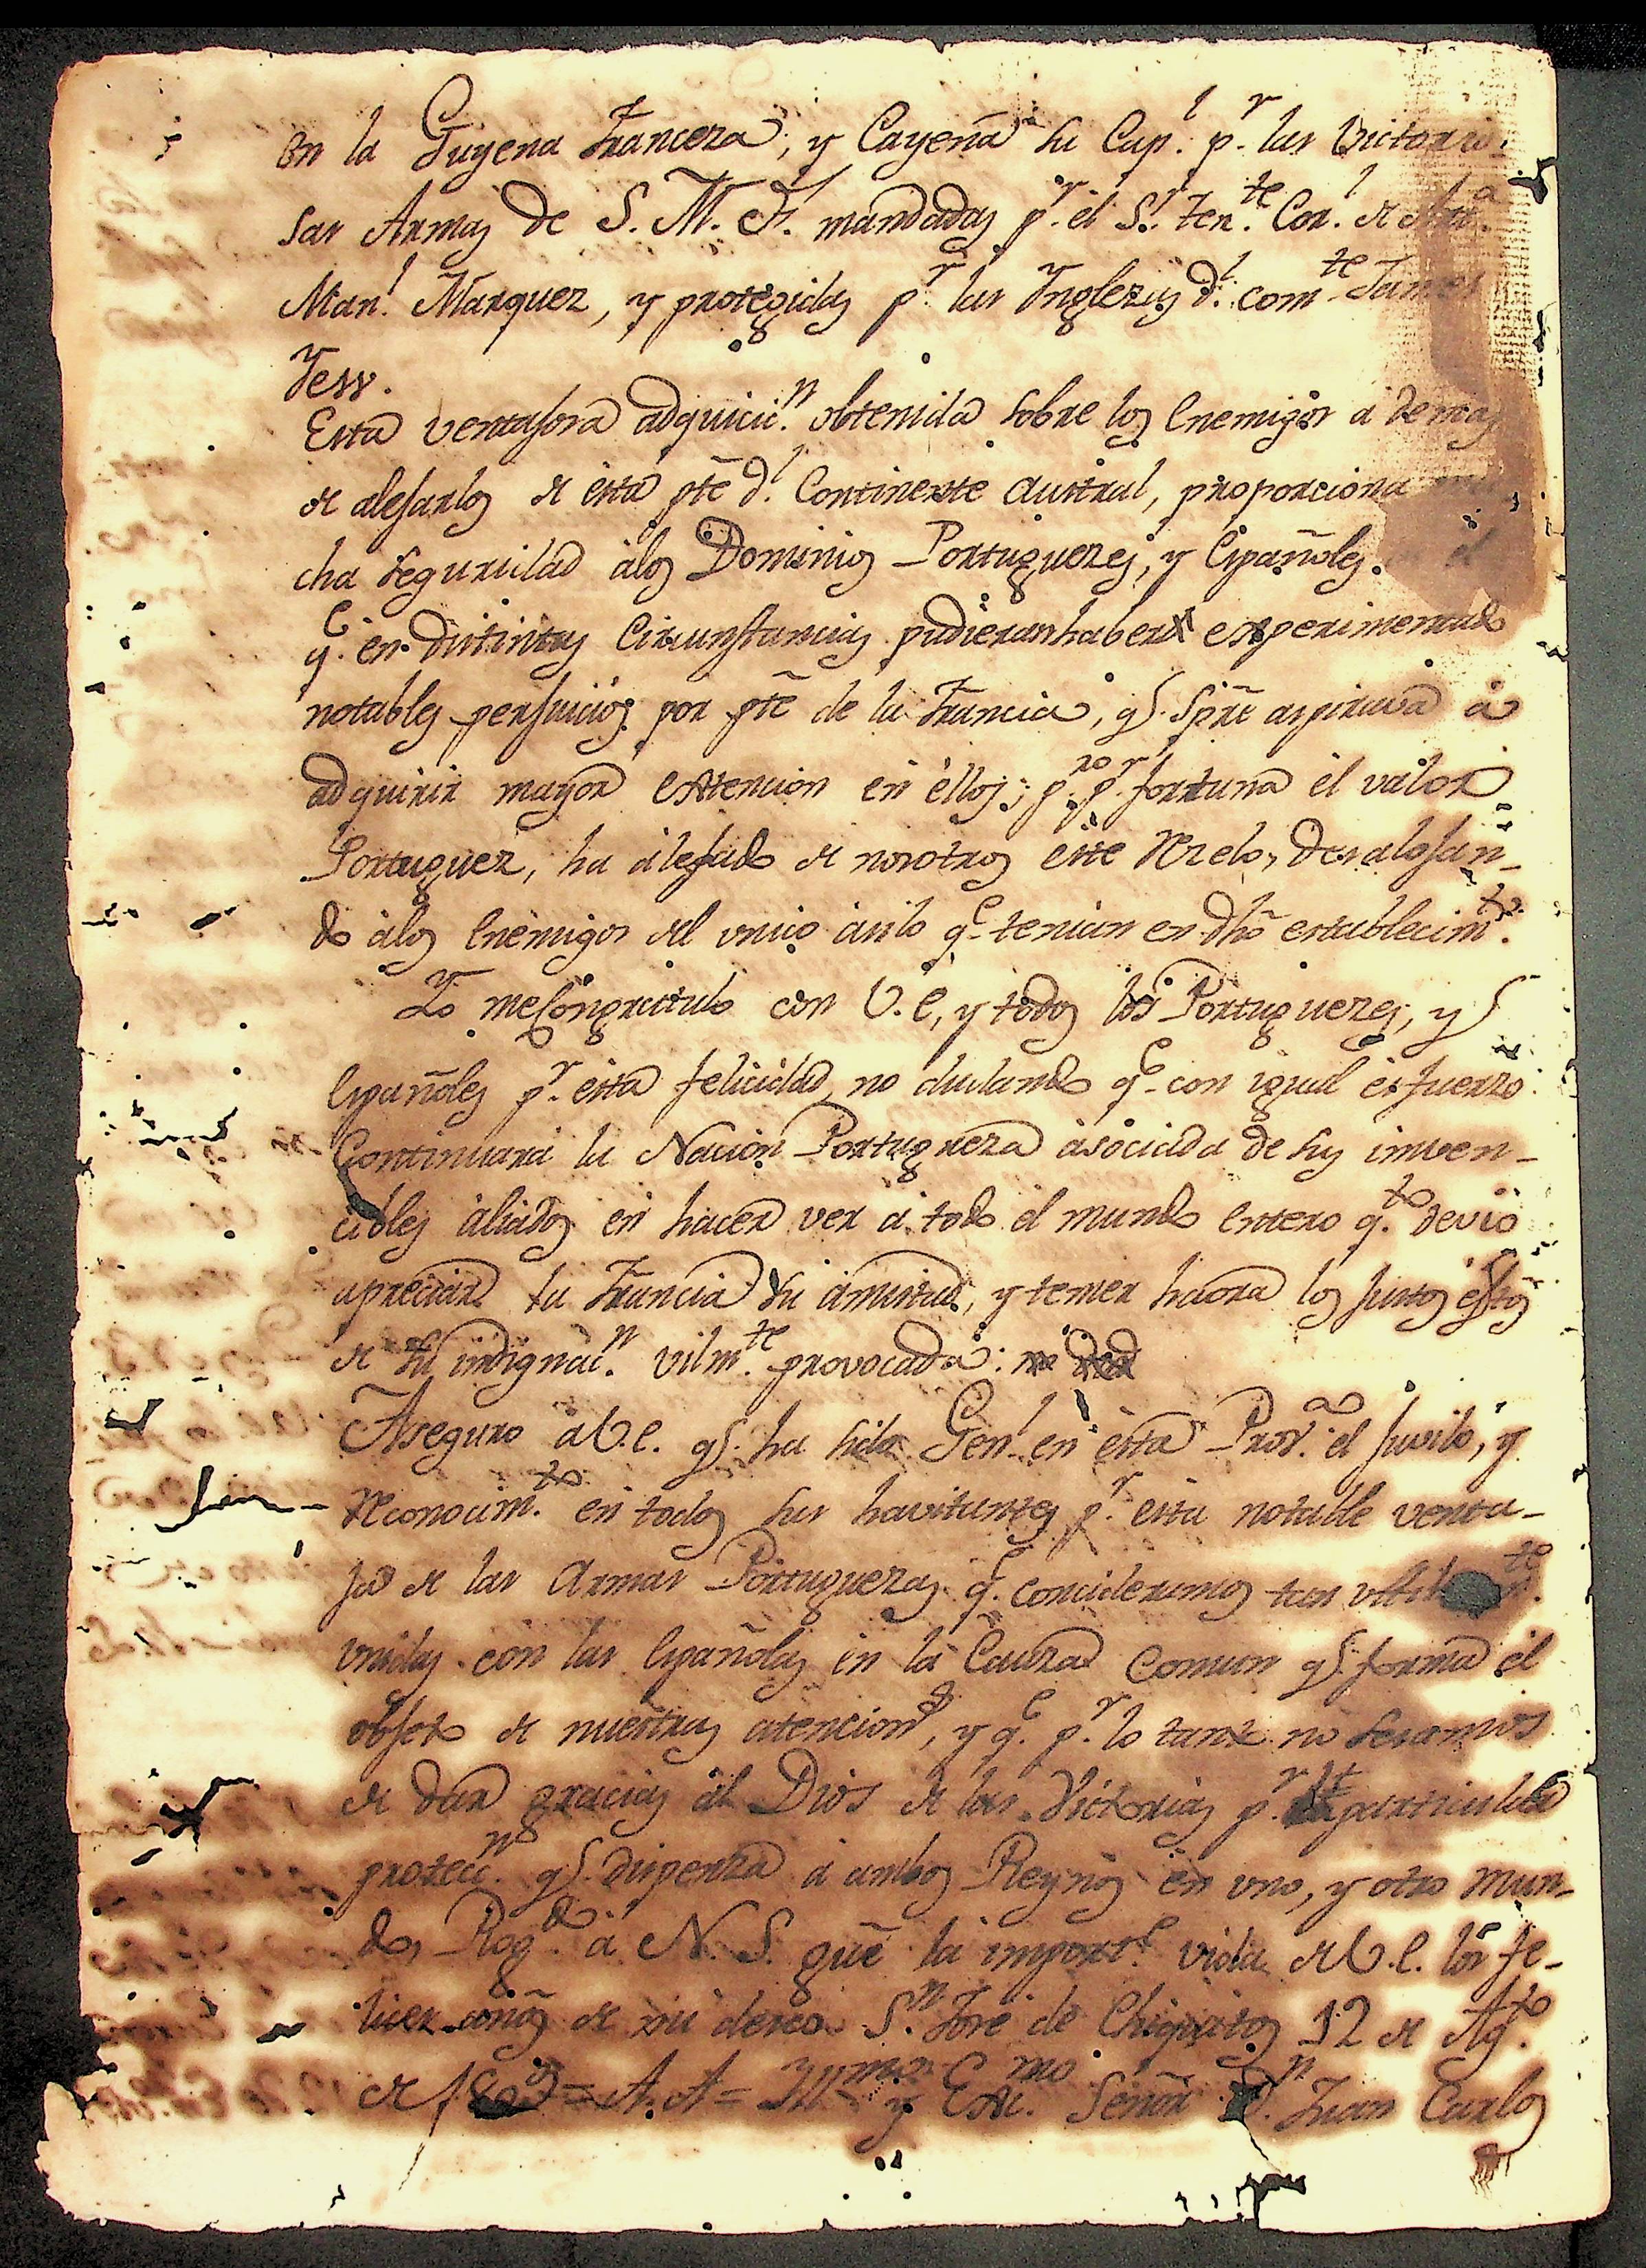 en la Guyena Franceza, y Cayena su Cap.l p.r las Victorio-
sas Armas de S. M. F. mandadas p.r el S.r Ten.te Cor.l de Art.a
Man.l Marquez, y protegidas p.r las Ynglezas d.l com.te James
Yeso.
Esta ventajosa adquicic.n obtenida sobre los Enemigos a demas
de alejarlos de esta pte d.l Continente Austral, proporciona
cha seguridad à los Dominios Portuguezes, y Españoles.
q.e en distintas Circunstancias pudieran haber experimentado
notables perjuicios por pte de la Francia, q.e Spre aspirava à
adquirir mayor extencion en éllos; p.ro p.r fortuna el valor
Portuguez, ha alejado de nosotros este rezelo, desalojan-
do à los Enemigos del unico asilo q.e tenian en dho establecim.to
Yo me Congratulo con V. E, y todos los Portuguezes, y
Españoles p.r esta felicidad, no dudando q.e con igual esfuerzo
Continuará la Nacion Portugueza asociada de sus inven-
cibles aliados en hacer ver a todo el mundo entero q.to devio
apreciar la Francia su amistad, y temer haora los justos efctos
de su indignac.n vilm.te provocada:
Aseguro a V.E. q.e ha sido Gen.l en esta Prov.a el juvilo, y
reconocim.to en todos sus havitantes p.r esta notable venta-
ja de las Armas Portuguezas q.e concideramos tan
unidas con las Españolas en la Cauza Comun q.e forma el
objeto de nuestras atencion.s, y q.e p.r lo tanto no sesamos
de dar gracias al Dios de las Victorias p.r la particular
protecc.n q.e dispenza a ambos Reynos en uno, y otro mun-
do, Rog.do a N. S. gue la import.e vida de V.E. los fe-
lices años de mi deseo S.n José de Chiquitos 12 de Ag.to
de 1809 = A. A = Yll.mo y Exc.mo Señor D.n Juan Carlos